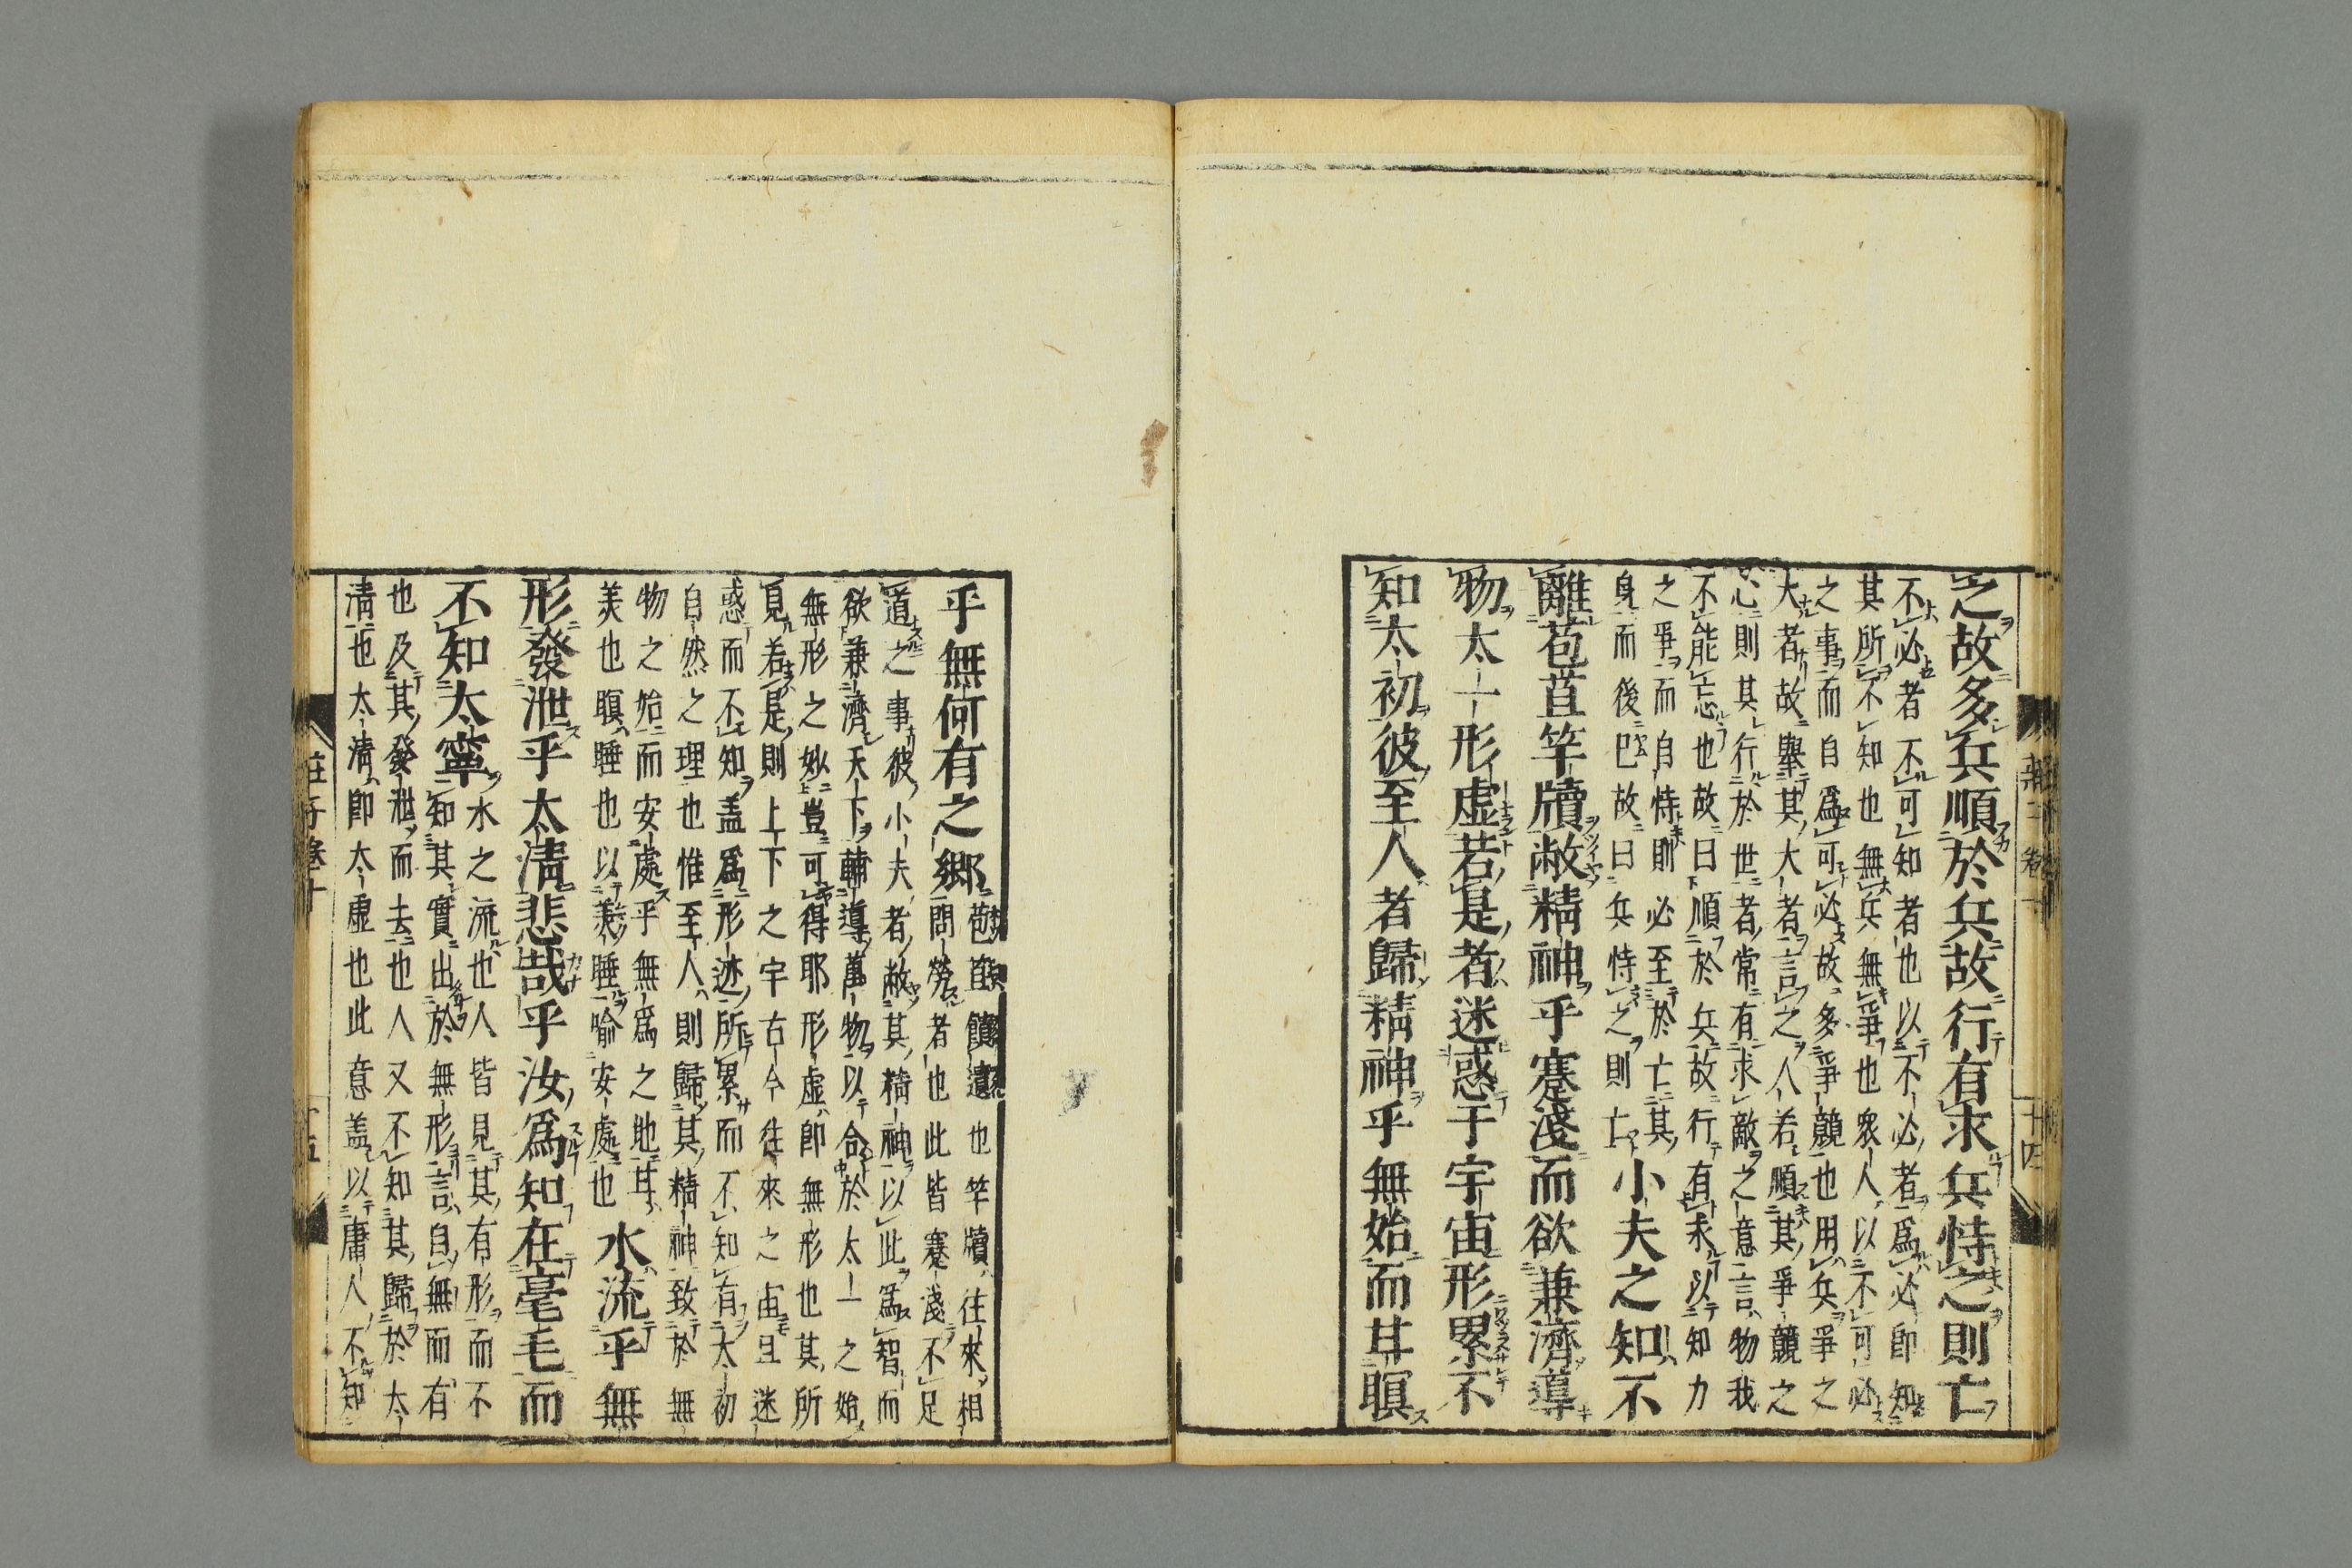 之故多兵順於兵故行有求兵恃之則亡
不必者不可知者也以不必者爲必即知
其所不知也無兵無爭也衆人以不可必
之事而自爲可必故多爭競也用兵爭之
大者故擧其大者言之人若順其爭競之
心則其行於世者常有求敵之意言物我
不能忘也故曰順於兵故行有求以知力
之爭而自恃則必至於亡其
身而後已故曰兵恃之則亡
小夫之知不
離苞苴竿牘敝精神乎蹇淺而欲兼濟導
物太一形虚若是者迷惑于宇宙形累不
知太初彼至人者歸精神乎無始而甘瞑
乎無何有之鄉
苞苴饋遺也竿牘往來相
問勞者也此皆蹇淺不足
道之事彼小夫者敝其精神以此爲智而
欲兼濟天下輔導萬物以合於太一之始
無形之妙豈可得耶形虚即無形也其所
見若是則上下之宇古今往來之宙且迷
惑而不知盖爲形迹所累而不知有太初
自然之理也惟至人則歸其精神致於無
物之始而安處乎無爲之地甘
美也瞑睡也以美睡喻安處也
水流乎無
形發泄乎太淸悲哉乎汝爲知在毫毛而
不知太寧
水之流也人皆見其有形而不
知其實出於無形言自無而有
也及其發泄而去也人又不知其歸於太
淸也太淸即太虚也此意盖以庸人不知
莊子卷十
十四